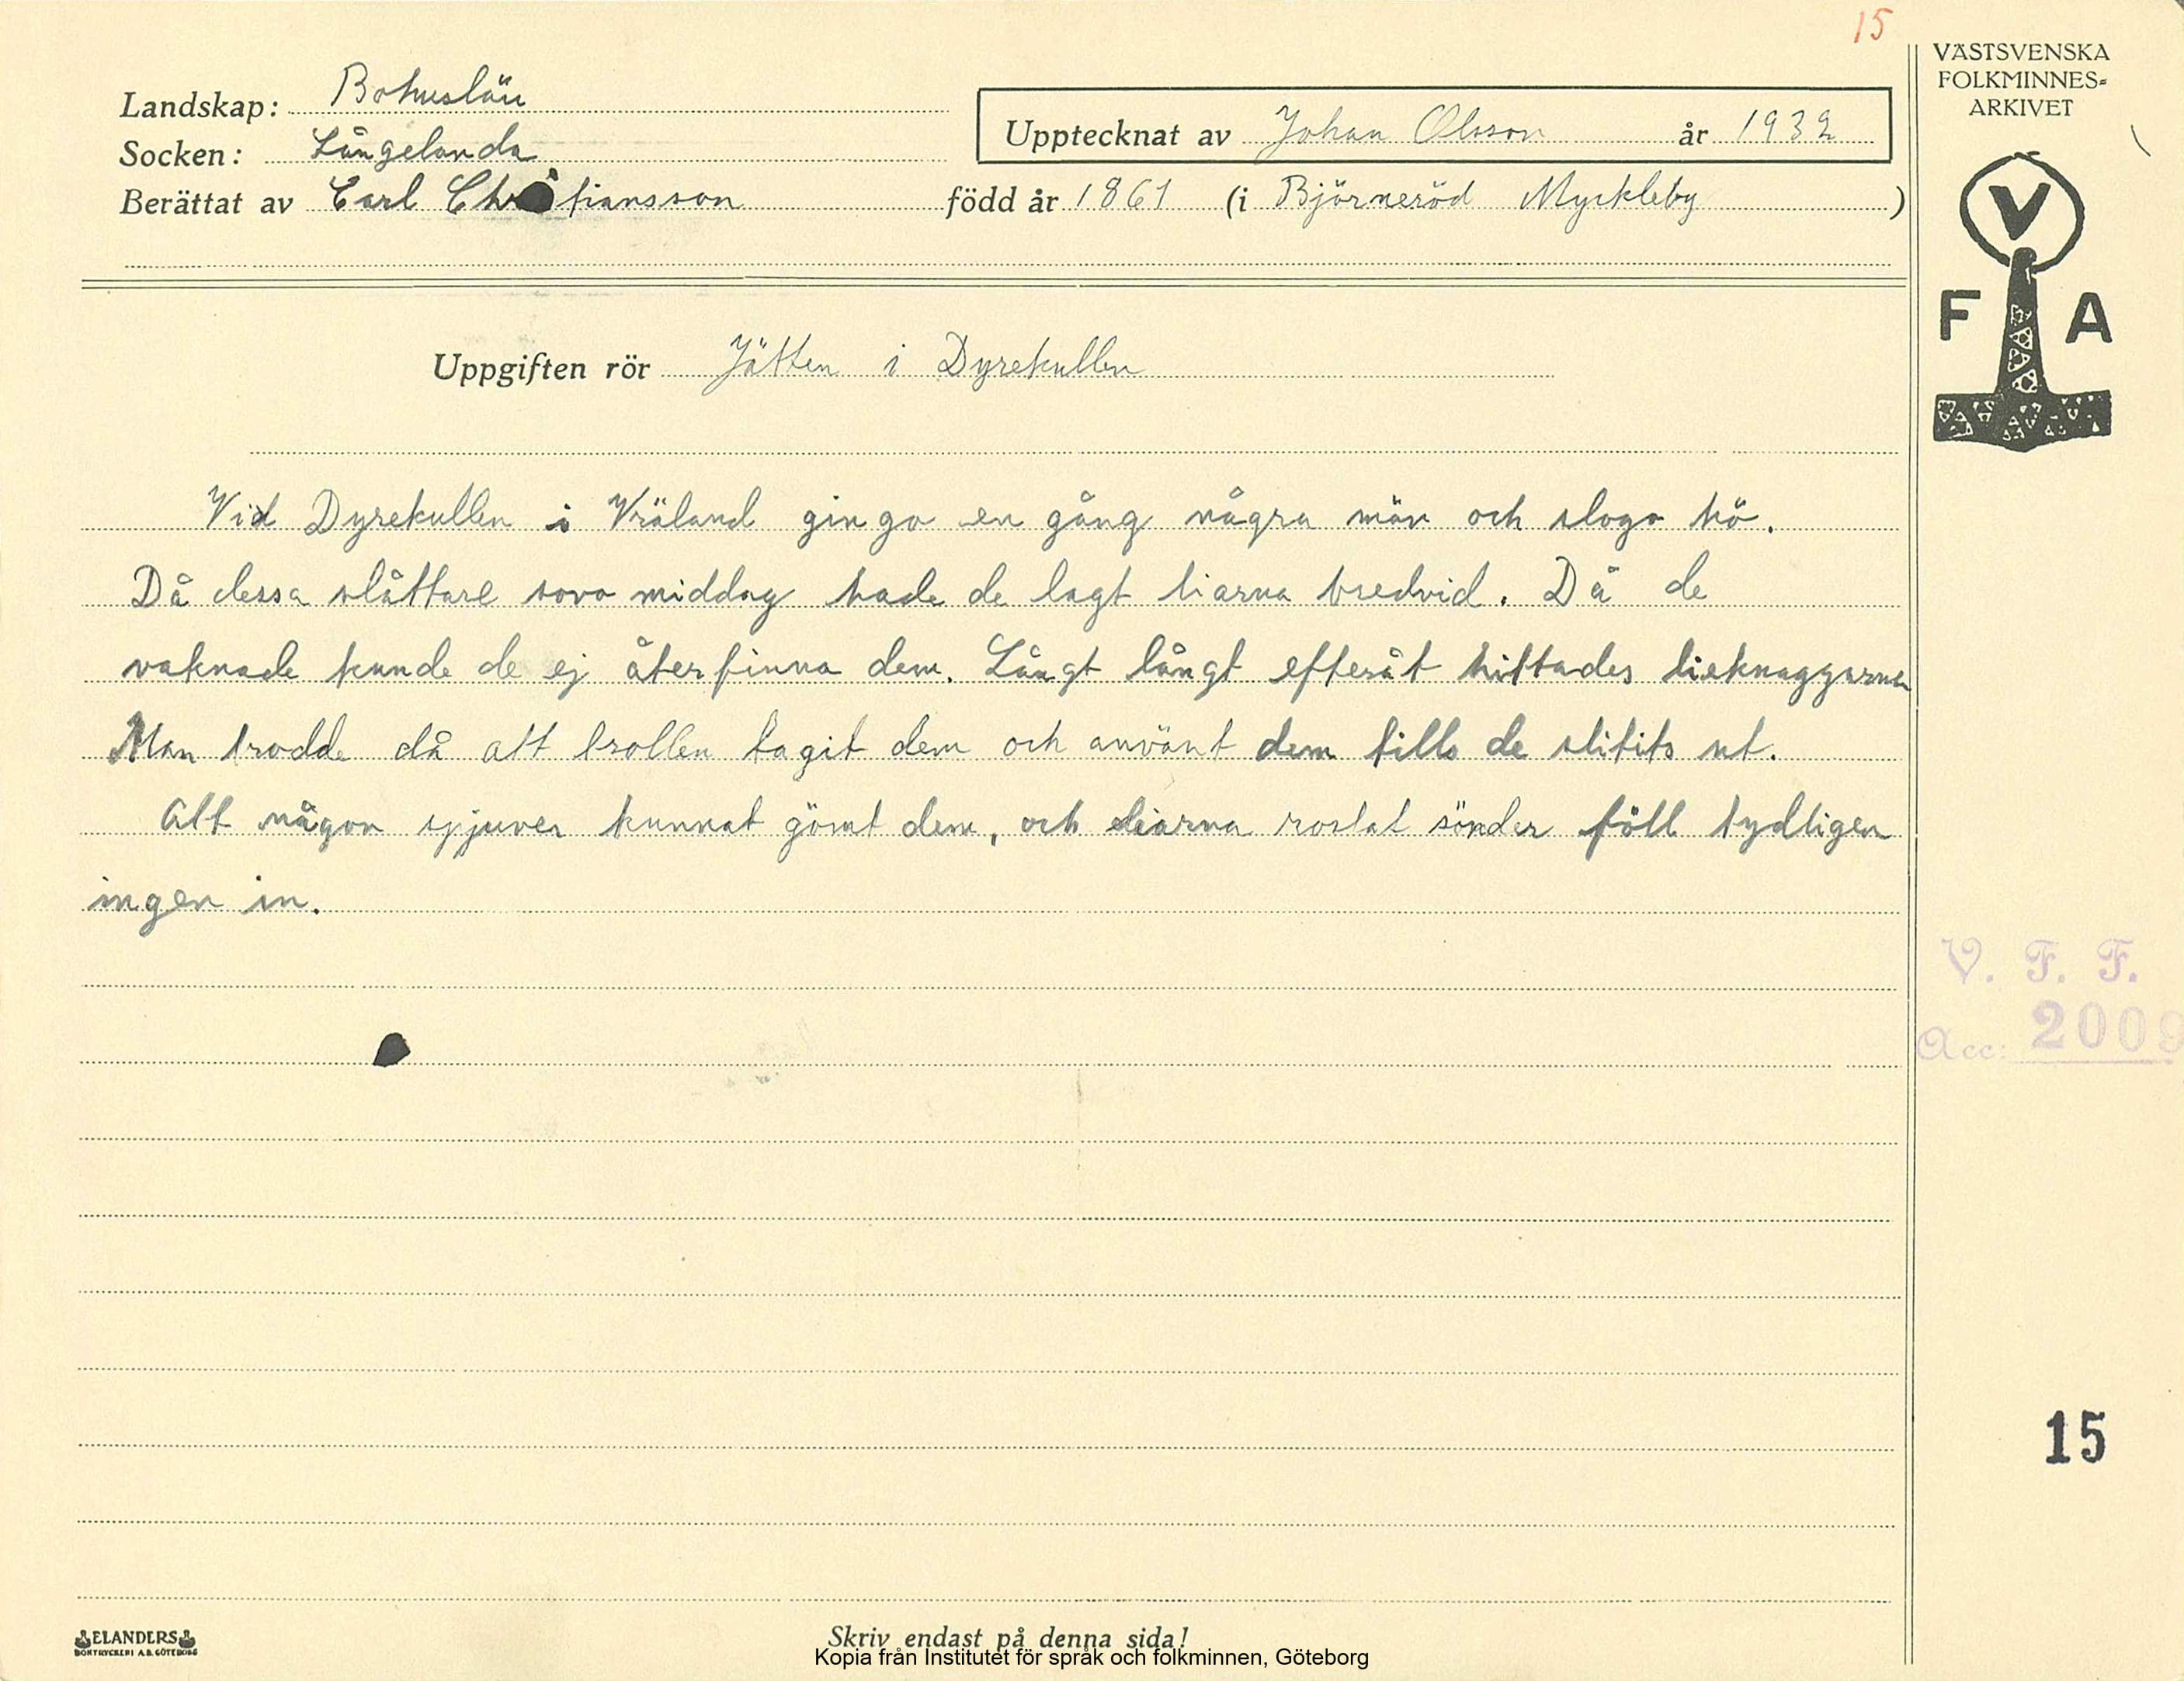 15
VÄSTSVENSKA
FOLKMINNES=
ARKIVET
Landskap: Bohuslän
Upptecknat av Johan Olsson år 1932
Socken: Långelanda
Berättat av Carl Christiansson född år 1861 (i Björneröd Myckleby)
V
F A
Uppgiften rör Jätten i Dyrekullen
Vid Dyrekullen i Vräland gingo en gång några män och slogo hö.
Då dessa slåttare sovo middag hade de lagt liarna bredvid. Då de
vaknade kunde de ej återfinna dem. Långt långt efteråt hittades lieknaggarna
Man trodde då att trollen tagit dem och använt dem tills de slitits ut.
Att någon spjuver kunnat gömt dem, och liarna rostat sönder föll tydligen
ingen in.
V. F. F.
Acc: 2009
15
ELANDERS
BOKTRYCKERI A.B. GÖTEBORG
Skriv endast på denna sida!
Kopia från Institutet för språk och folkminnen, Göteborg